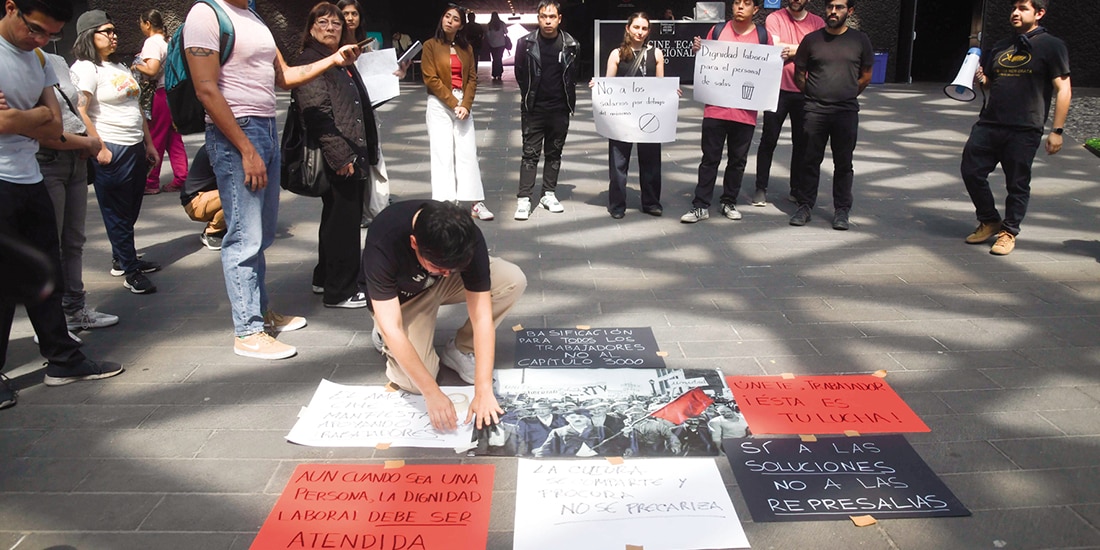 CINETECA
NACIONAL
No a
salarios por debajo
del mínimo
Dignidad laboral
para el personal
de salas
BASIFICACIÓN
PARA TODOS LOS
TRABAJADORES
NO AL
CAPÍTULO 3000
ÚNETE, TRABAJADOR
¡ÉSTA ES
TU LUCHA!
AUN CUANDO SEA UNA
PERSONA, LA DIGNIDAD
LABORAL DEBE SER
ATENDIDA
LA CULTURA
SE COMPARTE Y
PROCURA
NO SE PRECARIZA
SÍ A LAS
SOLUCIONES
NO A LAS
REPRESALIAS